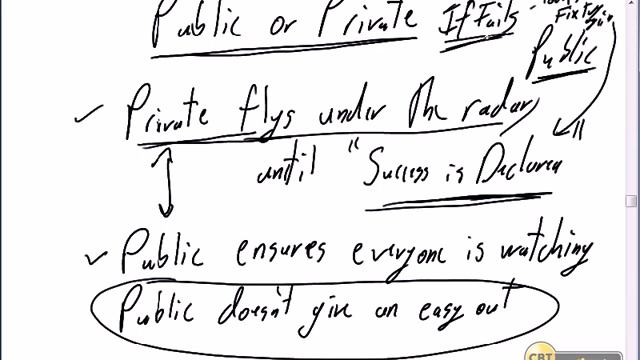 Public or Private If Fails -
Public
Private flys under the radar,
until "Success is Declared"
Public ensures everyone is watching
Public doesn't give an easy out
CBT